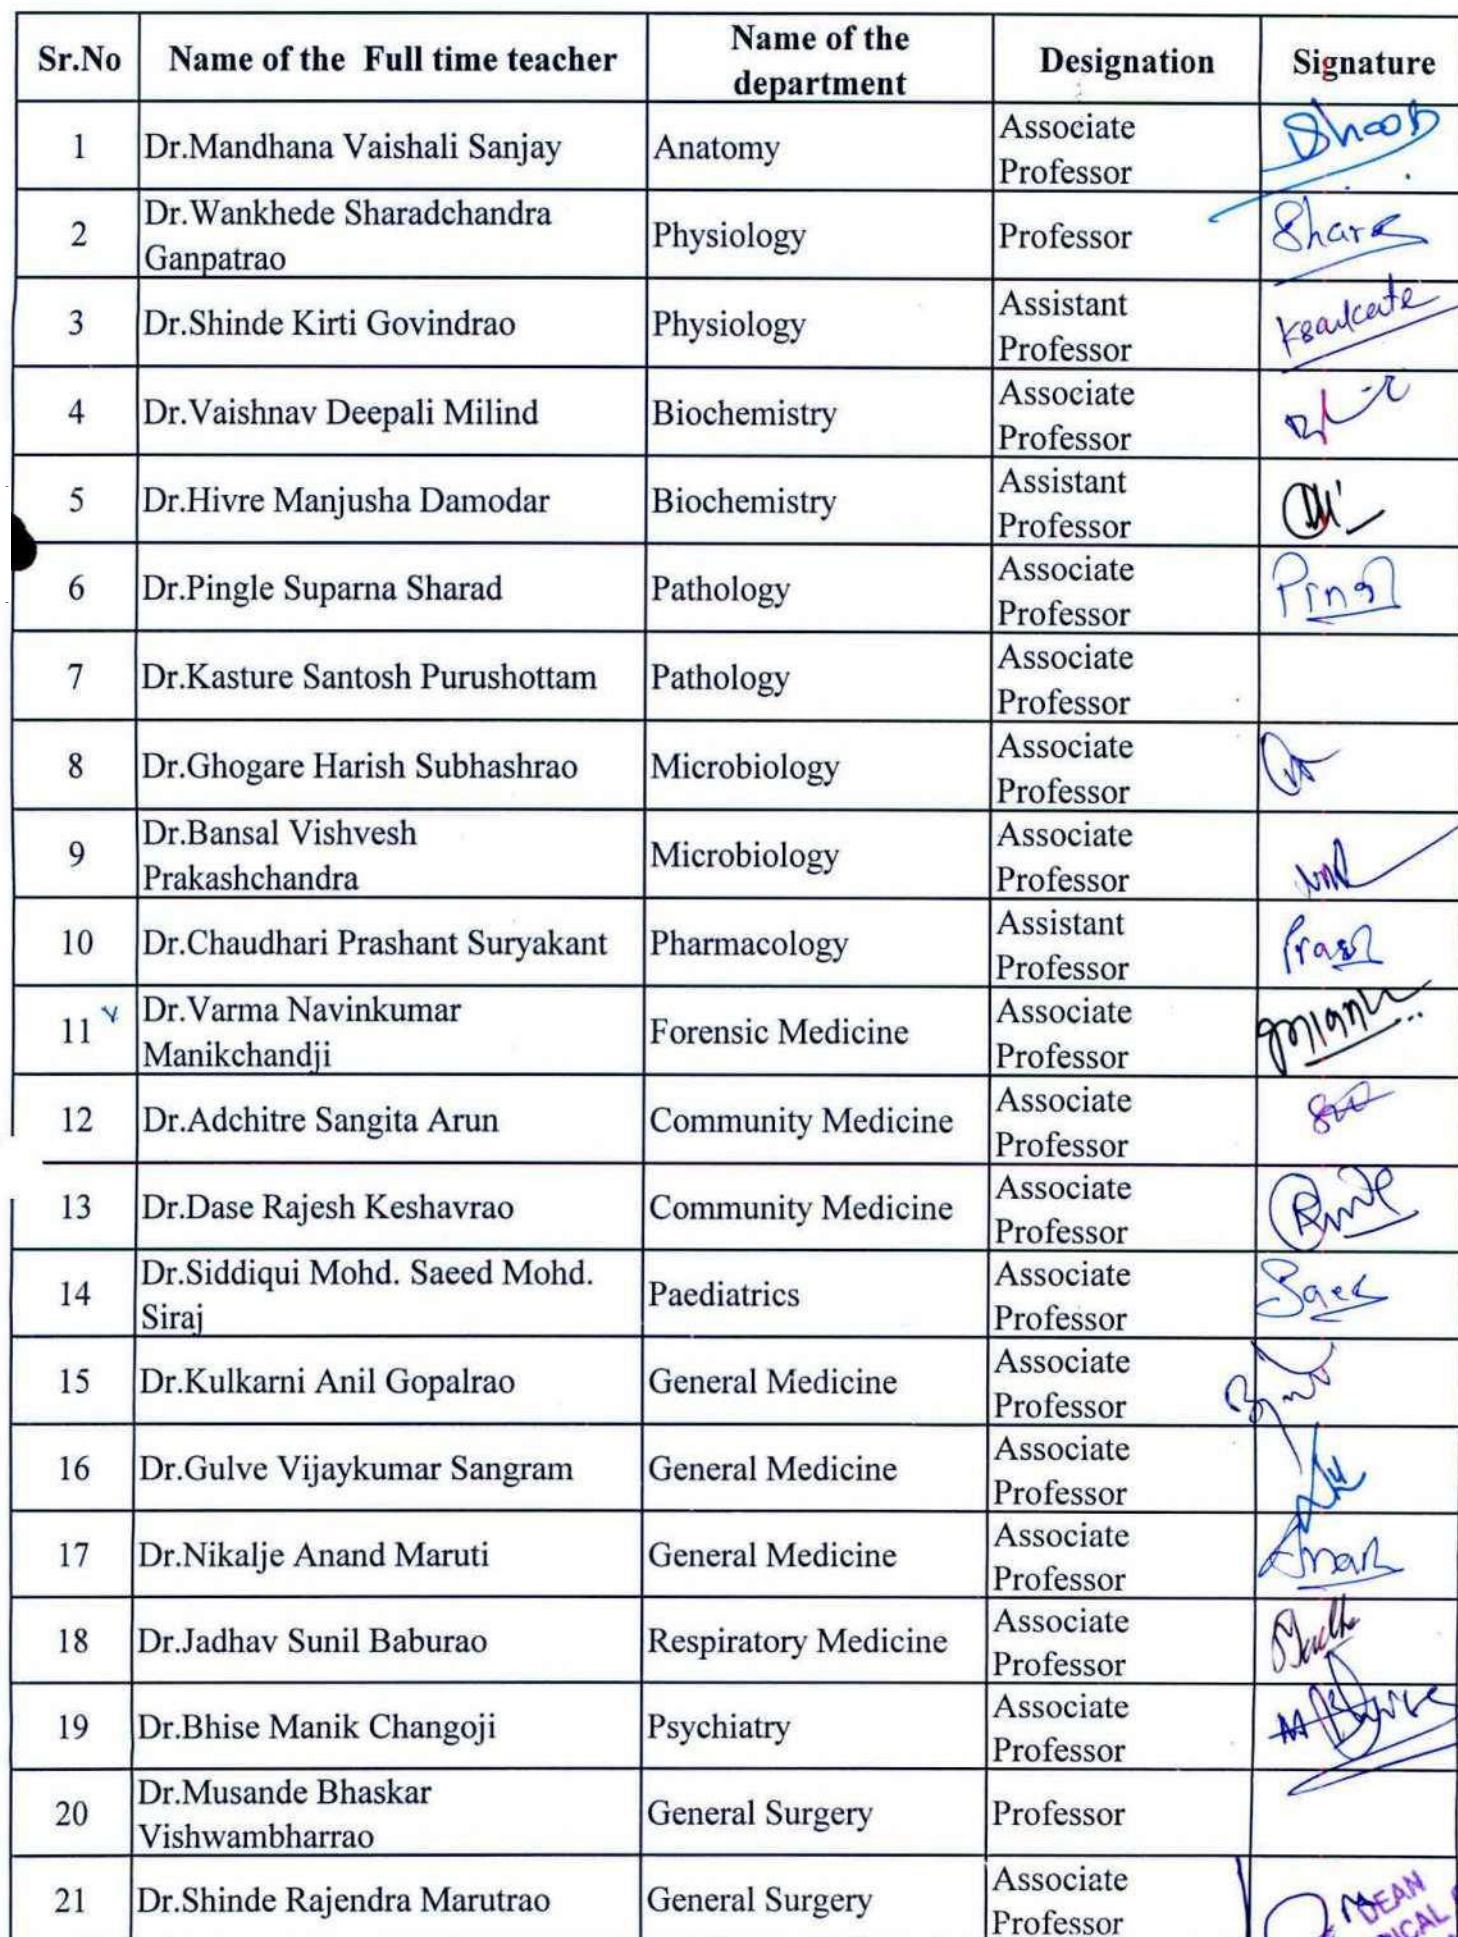 Sr.No Name of the Full time teacher Name of the department Designation Signature
1 Dr.Mandhana Vaishali Sanjay Anatomy Associate Professor
2 Dr.Wankhede Sharadchandra Ganpatrao Physiology Professor
3 Dr.Shinde Kirti Govindrao Physiology Assistant Professor
4 Dr.Vaishnav Deepali Milind Biochemistry Associate Professor
5 Dr.Hivre Manjusha Damodar Biochemistry Assistant Professor
6 Dr.Pingle Suparna Sharad Pathology Associate Professor
7 Dr.Kasture Santosh Purushottam Pathology Associate Professor
8 Dr.Ghogare Harish Subhashrao Microbiology Associate Professor
9 Dr.Bansal Vishvesh Prakashchandra Microbiology Associate Professor
10 Dr.Chaudhari Prashant Suryakant Pharmacology Assistant Professor
11 Dr.Varma Navinkumar Manikchandji Forensic Medicine Associate Professor
12 Dr.Adchitre Sangita Arun Community Medicine Associate Professor
13 Dr.Dase Rajesh Keshavrao Community Medicine Associate Professor
14 Dr.Siddiqui Mohd. Saeed Mohd. Siraj Paediatrics Associate Professor
15 Dr.Kulkarni Anil Gopalrao General Medicine Associate Professor
16 Dr.Gulve Vijaykumar Sangram General Medicine Associate Professor
17 Dr.Nikalje Anand Maruti General Medicine Associate Professor
18 Dr.Jadhav Sunil Baburao Respiratory Medicine Associate Professor
19 Dr.Bhise Manik Changoji Psychiatry Associate Professor
20 Dr.Musande Bhaskar Vishwambharrao General Surgery Professor
21 Dr.Shinde Rajendra Marutrao General Surgery Associate Professor
DEAN